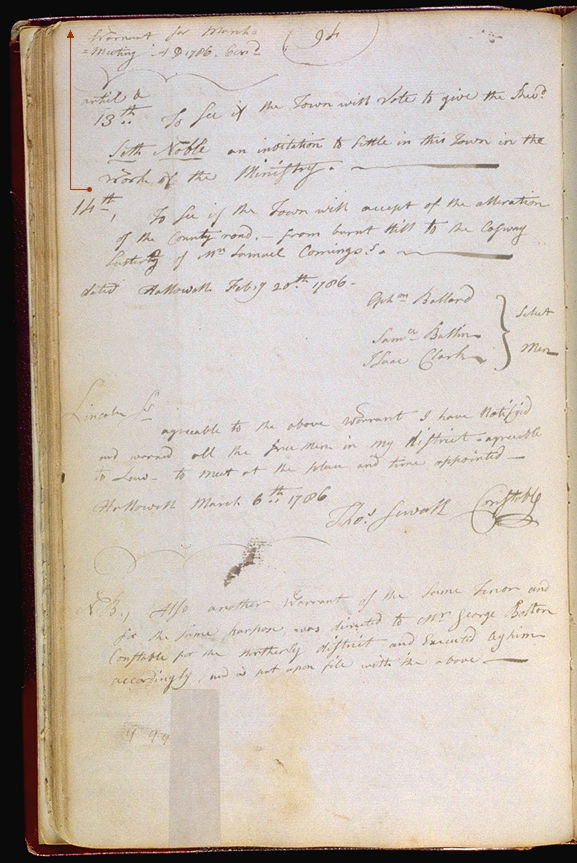 Warrant for March
Meeting AD 1786. Cont.d
94
articl e
13th To See if the Town will Vote to give the Revd
Seth Noble an invitation to Settle in this Town in the
Work of the Ministry.
14th, To See if the Town will accept of the alteration
of the County road. – from burnt Hill to the Casway
of Mr Samuel Comings's.
dated Hallowell Feby 20th 1786 –
Ephm Ballard
Saml Bullin
Isaac Clark
Select
Men
Lincoln Ss
agreeable to the above Warrant I have Notifyd
and warned all the Free Men in my district – agreeable
to Law – to meet at the place and time appointed –
Hallowell March 6th 1786
Thos Sewall Constable
N.B., Also another Warrant of the Same Tenor and
for the Same purpose, was directed to Mr George
Constable for the Northerly district and Executed by him
accordingly, and is not upon file with the above –